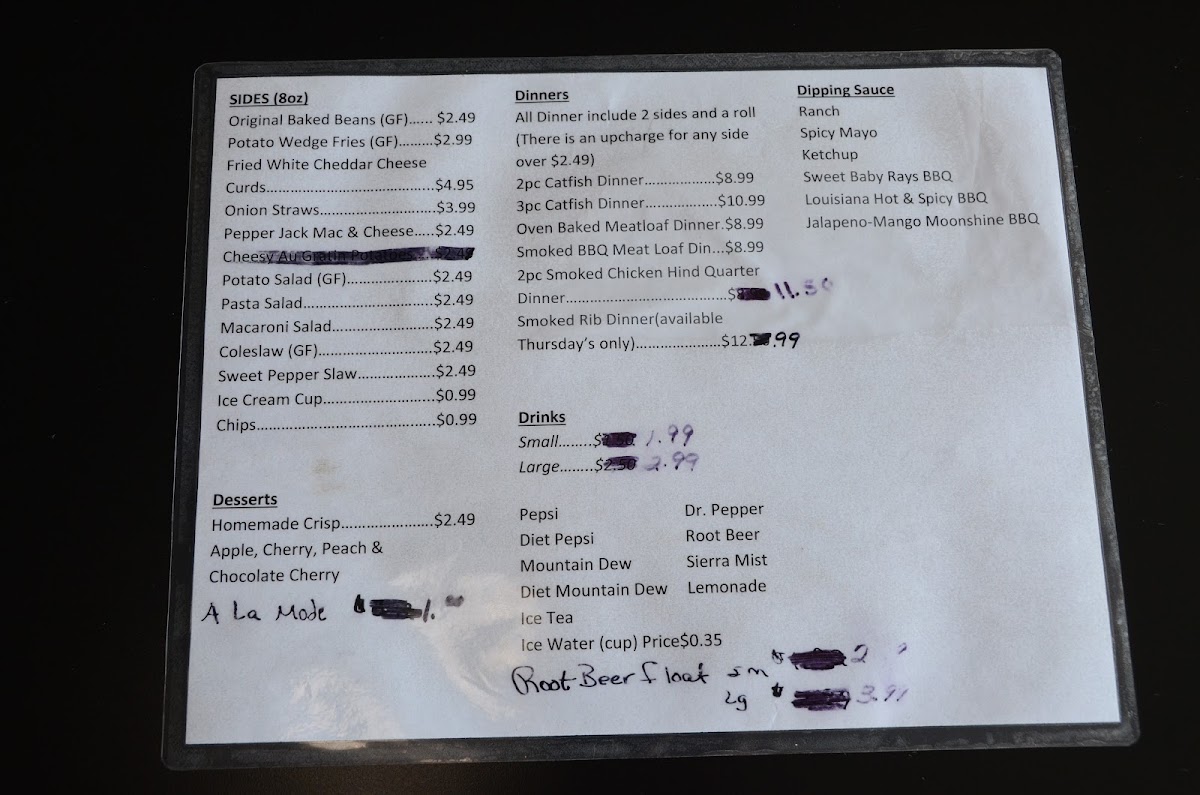 SIDES (8oz)
Original Baked Beans (GF)...... $2.49
Potato Wedge Fries (GF).........$2.99
Fried White Cheddar Cheese
Curds.....................................$4.95
Onion Straws.........................$3.99
Pepper Jack Mac & Cheese.....$2.49
Cheesy Au Gratin Potatoes... $2.49
Potato Salad (GF)...................$2.49
Pasta Salad............................$2.49
Macaroni Salad......................$2.49
Coleslaw (GF).........................$2.49
Sweet Pepper Slaw.................$2.49
Ice Cream Cup........................$0.99
Chips.......................................$0.99
Desserts
Homemade Crisp.....................$2.49
Apple, Cherry, Peach &
Chocolate Cherry
A La Mode $ 1.
Dinners
All Dinner include 2 sides and a roll
(There is an upcharge for any side
over $2.49)
2pc Catfish Dinner..................$8.99
3pc Catfish Dinner..................$10.99
Oven Baked Meatloaf Dinner.$8.99
Smoked BBQ Meat Loaf Din...$8.99
2pc Smoked Chicken Hind Quarter
Dinner....................................$ 11.50
Smoked Rib Dinner(available
Thursday's only).....................$12. .99
Drinks
Small........$ 1.99
Large........$2.50 2.99
Pepsi
Diet Pepsi
Mountain Dew
Diet Mountain Dew
Ice Tea
Ice Water (cup) Price$0.35
Dr. Pepper
Root Beer
Sierra Mist
Lemonade
Root Beer float sm $ 2
Lg $ 3.99
Dipping Sauce
Ranch
Spicy Mayo
Ketchup
Sweet Baby Rays BBQ
Louisiana Hot & Spicy BBQ
Jalapeno-Mango Moonshine BBQ